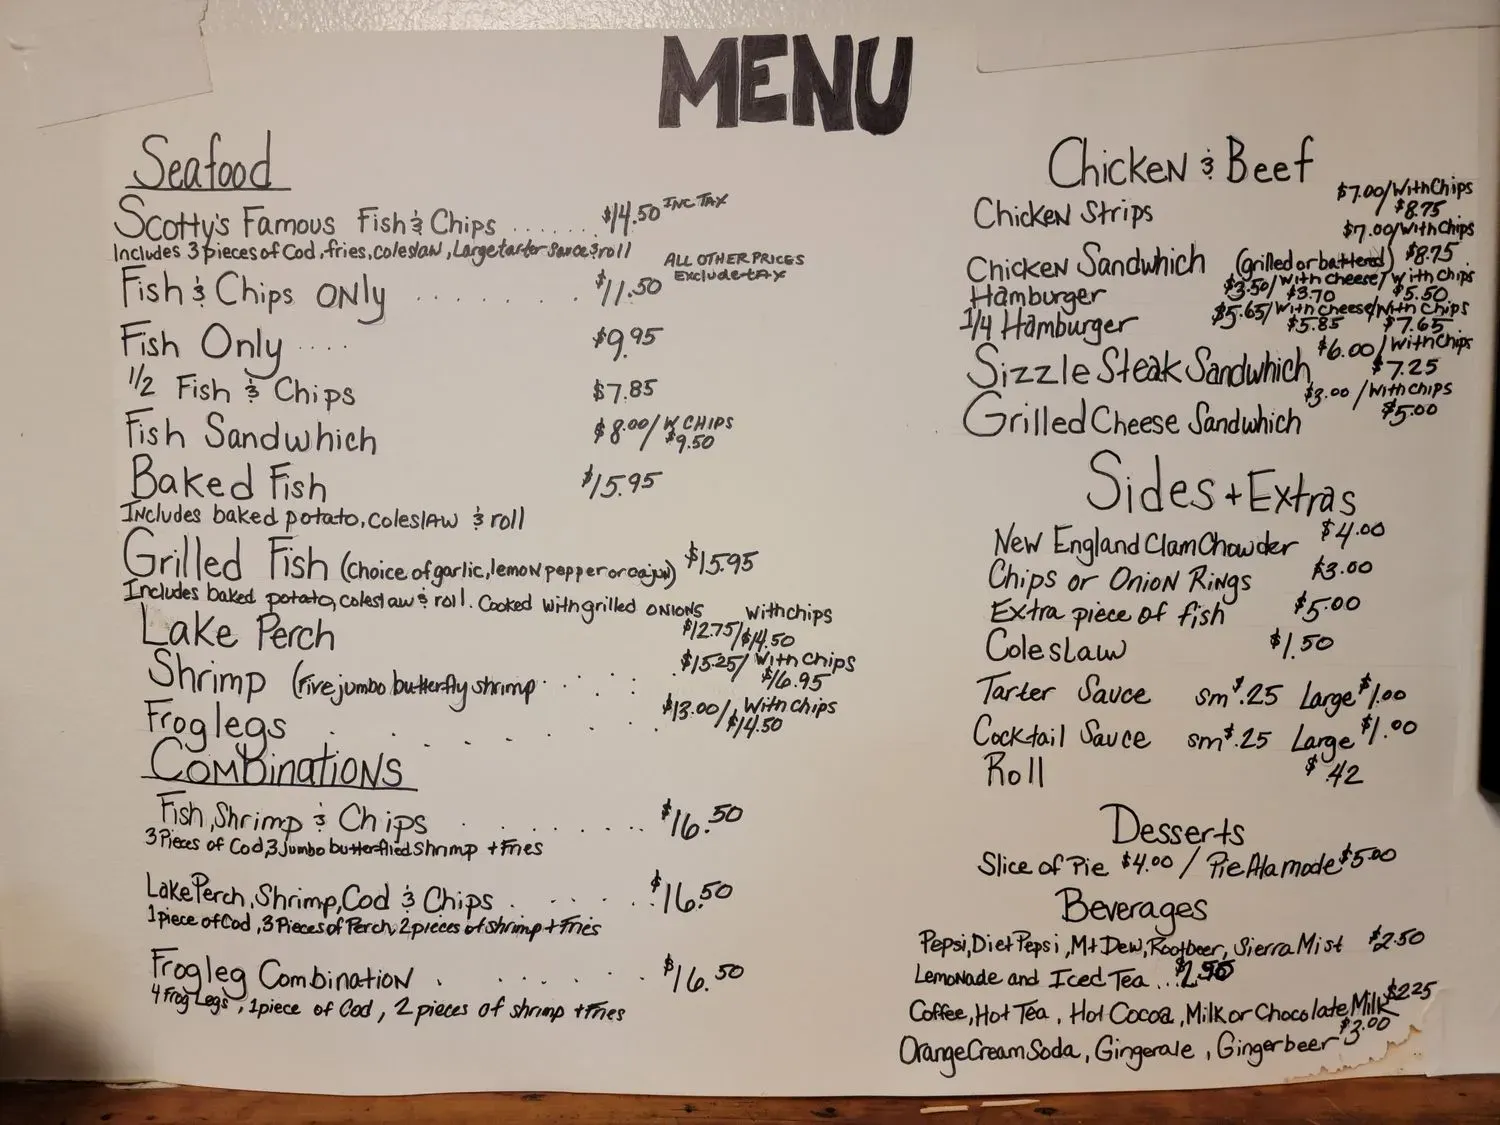 MENU
Seafood
Scotty's Famous Fish & Chips ....... $14.50 INC TAX
Includes 3 pieces of Cod, fries, coleslaw, Large tarter sauce & roll
ALL OTHER PRICES
Exclude tax
Fish & Chips ONly ........ $11.50
Fish Only .... $9.95
1/2 Fish & Chips $7.85
Fish Sandwhich $8.00/ W CHIPS
$9.50
Baked Fish $15.95
Includes baked potato, coleslaw & roll
Grilled Fish (choice of garlic, lemon pepper or cajun) $15.95
Includes baked potato, coleslaw & roll. Cooked with grilled ONIONS
Lake Perch $12.75/ with chips
$14.50
Shrimp (Five jumbo butterfly shrimp . . : : $15.25/ With Chips
$16.95
Frog legs . . . . . . . $13.00/ With chips
$14.50
COMBinatiONS
Fish, Shrimp & Chips . . . . . . . . $16.50
3 Pieces of Cod, 3 Jumbo butterflied Shrimp + Fries
Lake Perch, Shrimp, Cod & Chips . . . . . . $16.50
1 piece of Cod, 3 Pieces of Perch, 2 pieces of shrimp + Fries
Frog leg Combination . . . . . . $16.50
4 Frog Legs, 1 piece of Cod, 2 pieces of shrimp + Fries
Chicken & Beef
Chicken Strips $7.00/With Chips
$8.75
Chicken Sandwhich (grilled or battered) $7.00/with chips
$8.75
Hamburger $3.50/with cheese/with chips
$3.70 $5.50
1/4 Hamburger $5.65/with cheese/with chips
$5.85 $7.65
Sizzle Steak Sandwhich $6.00/with chips
$7.25
Grilled Cheese Sandwhich $3.00/with chips
$5.00
Sides + Extras
New England Clam Chowder $4.00
Chips or Onion Rings $3.00
Extra piece of fish $5.00
Coleslaw $1.50
Tarter Sauce sm $.25 Large $1.00
Cocktail Sauce sm $.25 Large $1.00
Roll $.42
Desserts
Slice of Pie $4.00 / Pie Alamode $5.00
Beverages
Pepsi, Diet Pepsi, Mt Dew, Rootbeer, Sierra Mist $2.50
Lemonade and Iced Tea...$2.50
Coffee, Hot Tea, Hot Cocoa, Milk or Chocolate Milk $2.25
Orange Cream Soda, Gingerale, Gingerbeer $3.00